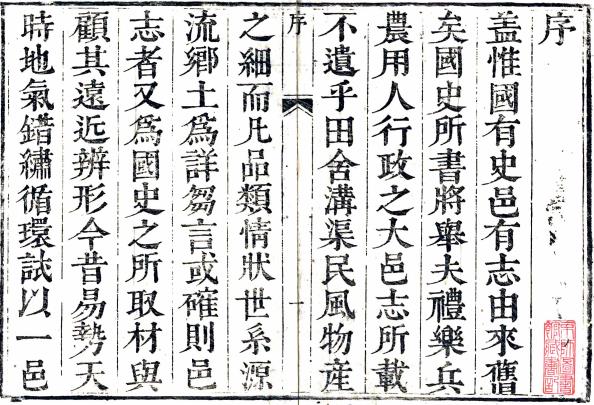 序
盖惟國有史邑有志由來舊
矣國史所書將舉夫禮樂兵
農用人行政之大邑志所載
不遺乎田舍溝渠民風物産
序
一
之細而凡品類情狀世系源
流鄉土爲詳芻言或確則邑
志者又爲國史之所取材與
顧其遠近辨形今昔易勢天
時地氣錯繡循環試以一邑